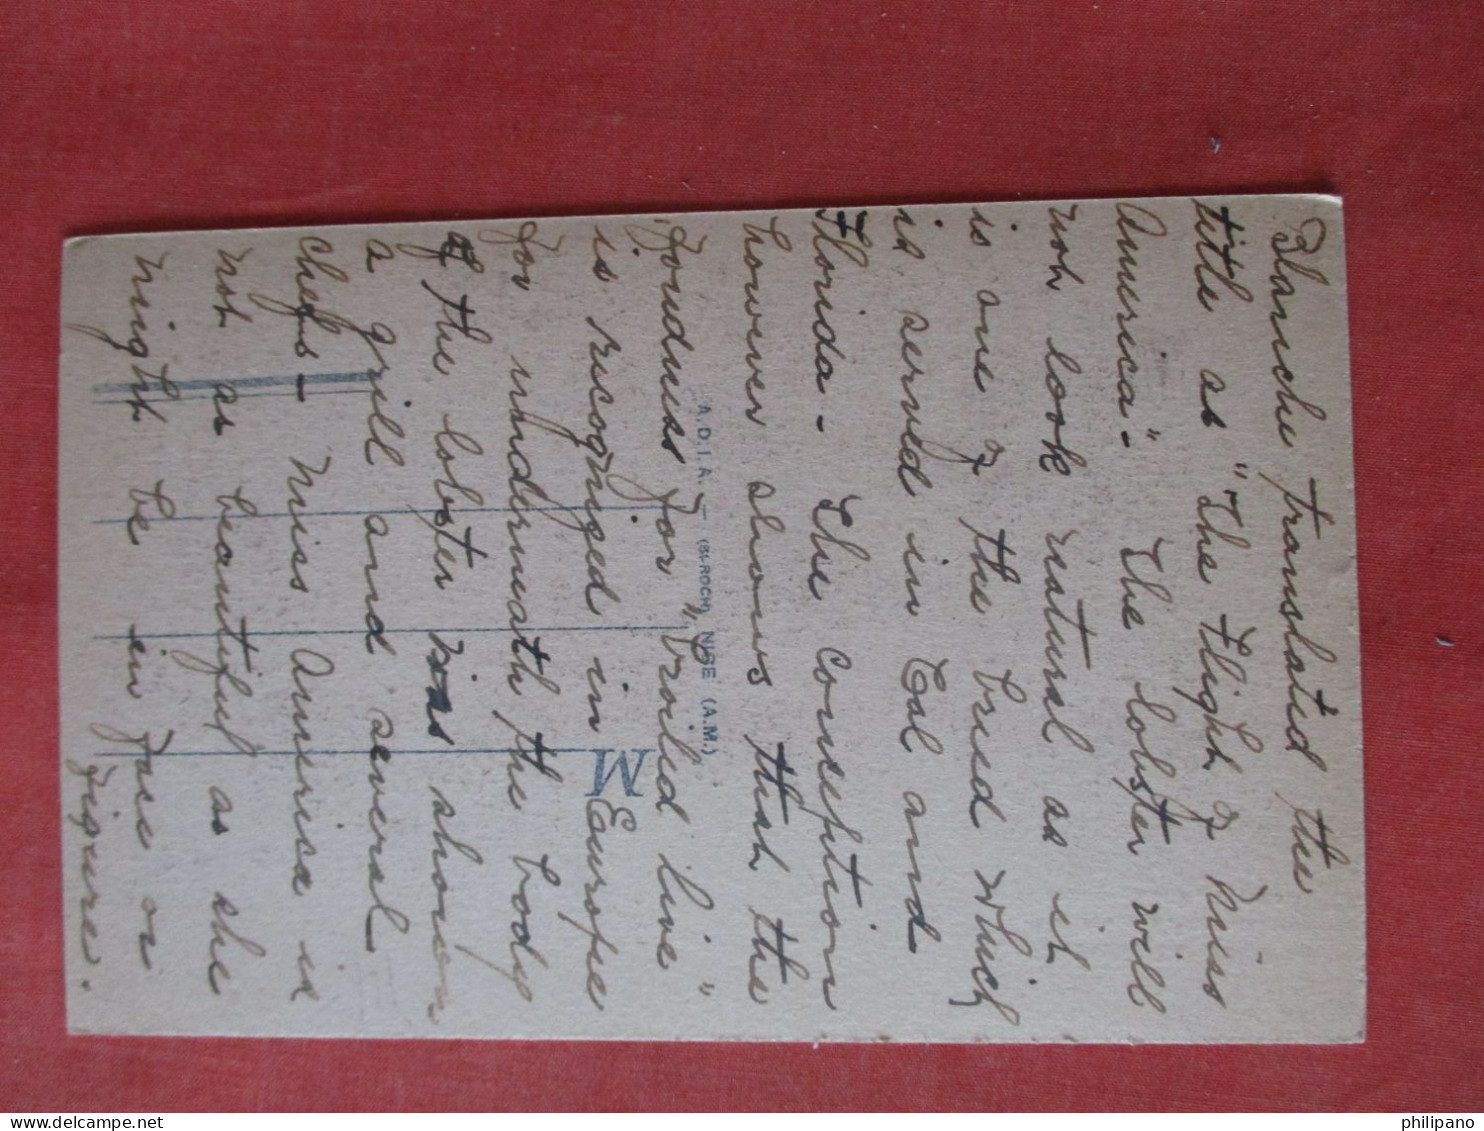 Blanche translated the
title as "The Flight of Miss
America" - The lobster will
not look natural as it
is one of the breed which
is served in Cal and
Florida - The conception
however shows that the
fondness for "broiled live"
is recognized in Europe
for underneath the body
of the lobster was shown
a grill and several
chefs - Miss America is
not as beautiful as she
might be in face or
figure.
A.D.I.A. - (St-ROCH) NICE (A.M.)
M
philipano